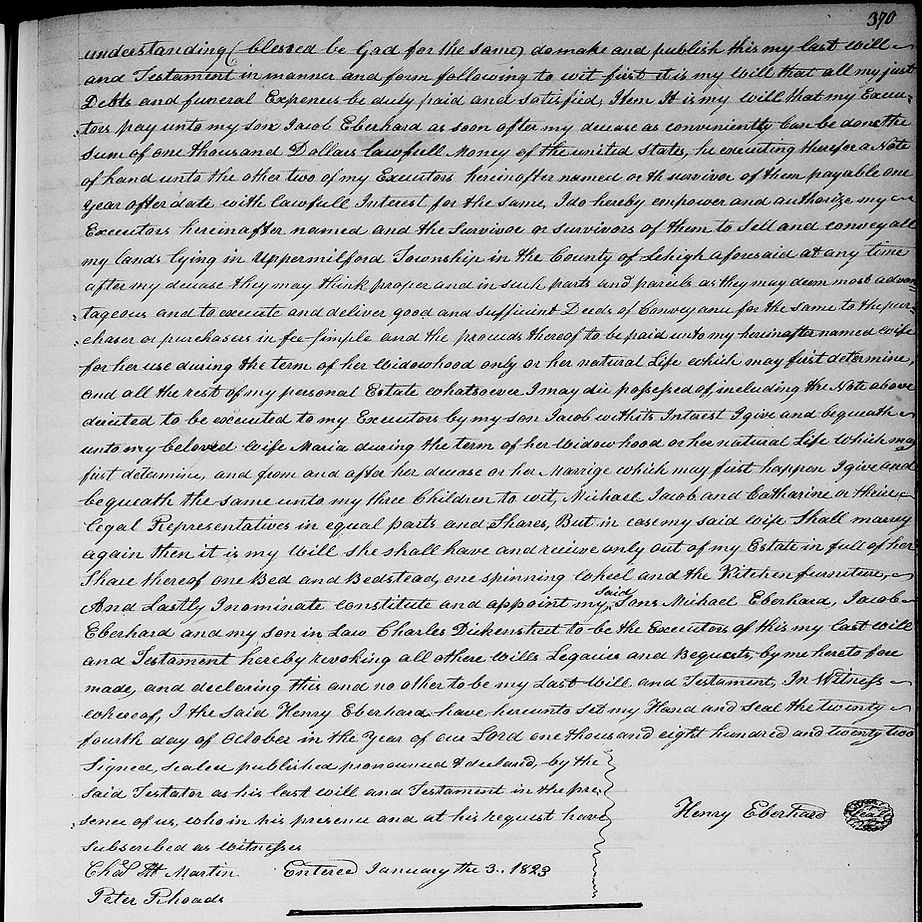 370
understanding (blessed be God for the same) do make and publish this my last will
and Testament in manner and form following to wit first it is my Will that all my just
Debts and funeral Expences be duly paid and satisfied, Item It is my will that my Execu-
tors pay unto my son Jacob Eberhard as soon after my decease as conveniently can be done the
sum of one thousand Dollars lawfull Money of the united States, he executing therefor a Note
of hand unto the other two of my Executors hereinafter named or th survivor of them payable one
year after date with lawfull Interest for the same, I do hereby empower and authorize my
Executors hereinafter named and the Survivor or survivors of them to Sell and convey all
my lands lying in Uppermilford Township in the County of Lehigh aforesaid at any time
after my decease they may think proper and in such parts and parcels as they may deem most advan
tageous and to execute and deliver good and sufficient Deeds of Conveyance for the same to the pur-
chaser or purchasers in fee simple and the proceeds thereof to be paid unto my hereinafter named wife
for her use during the term of her Widowhood only or her natural Life which may first determine,
and all the rest of my personal Estate whatsoever I may die possessed of, including the Note above
directed to be executed to my Executors by my son Jacob with its Intrest I give and bequeath
unto my beloved wife Maria during the term of her Widowhood or her natural Life which may
first determine, and from and after her decease or her Marrige which may first happen I give and
bequeath the same unto my three Children to wit, Michael Jacob and Catharine or their
legal Representatives in equal parts and Shares, But in case my said wife Shall marry
again then it is my Will she shall have and recieve only out of my Estate in full of her
Share thereof one Bed and Bedstead, one spinning Wheel and the Kitchen furniture,
And Lastly I nominate constitute and appoint my said Sons Michael Eberhard, Jacob
Eberhard and my son in Law Charles Dickensheet to be the Executors of this my last will
and Testament hereby revoking all other Wills Legacies and Bequests, by me hereto fore
made, and declaring this and no other to be my Last Will and Testament, In Witness
whereof, I the said Henry Eberhard have hereunto set my Hand and seal the twenty
fourth day of October in the Year of our Lord one thousand eight hundred and twenty two
Signed, sealed published pronounced & declared, by the
said Testator as his last will and Testament in the pre-
sence of us, who in his presence and at his request have
subscribed as witnesses
Henry Eberhard Seal
Chas. H Martin Entered January the 3.. 1823
Peter Rhoads